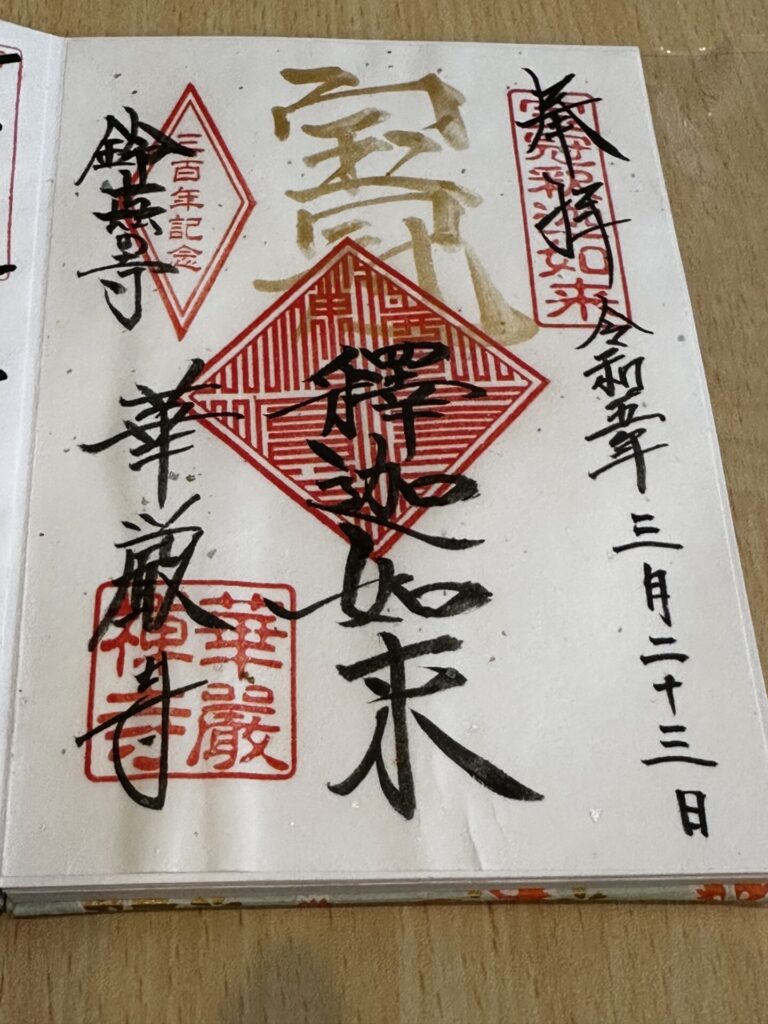 奉拝
令和五年三月二十三日
宝冠釈迦如来
宝冠
釋迦如来
三百年記念
鈴虫の寺
華厳寺
華嚴
禅寺